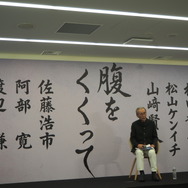 松山ケンイチ
山﨑
腹を
くくって
佐藤浩市
阿部 寛
渡辺 謙